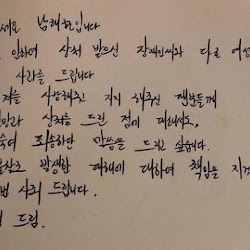 세요 남태현입니다
인하여 상처 받으신 장재인씨와 다른 여성
사과를 드립니다
저를 사랑해주고 지지 해주신 팬분들께
상처를 드린 점에 대해서도,
숙여 죄송하단 말씀을 드리고 싶습니다.
불찰로 발생한 피해에 대하여 책임을 지겠
번 사죄 드립니다.
드림.